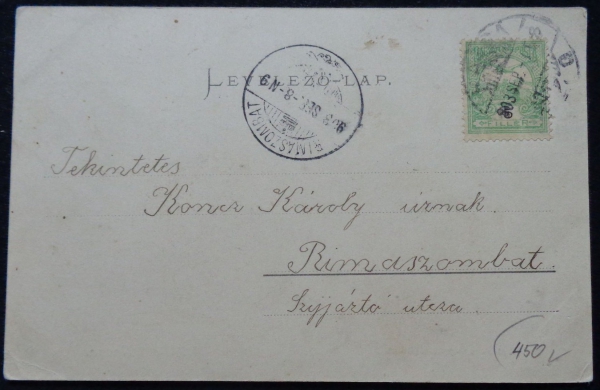 LEVELEZŐ-LAP.
RIMASZOMBAT
903 SEP -8-N9
Tekintetes
Koncz Károly úrnak.
Rimaszombat.
Szijjártó utcza.
450